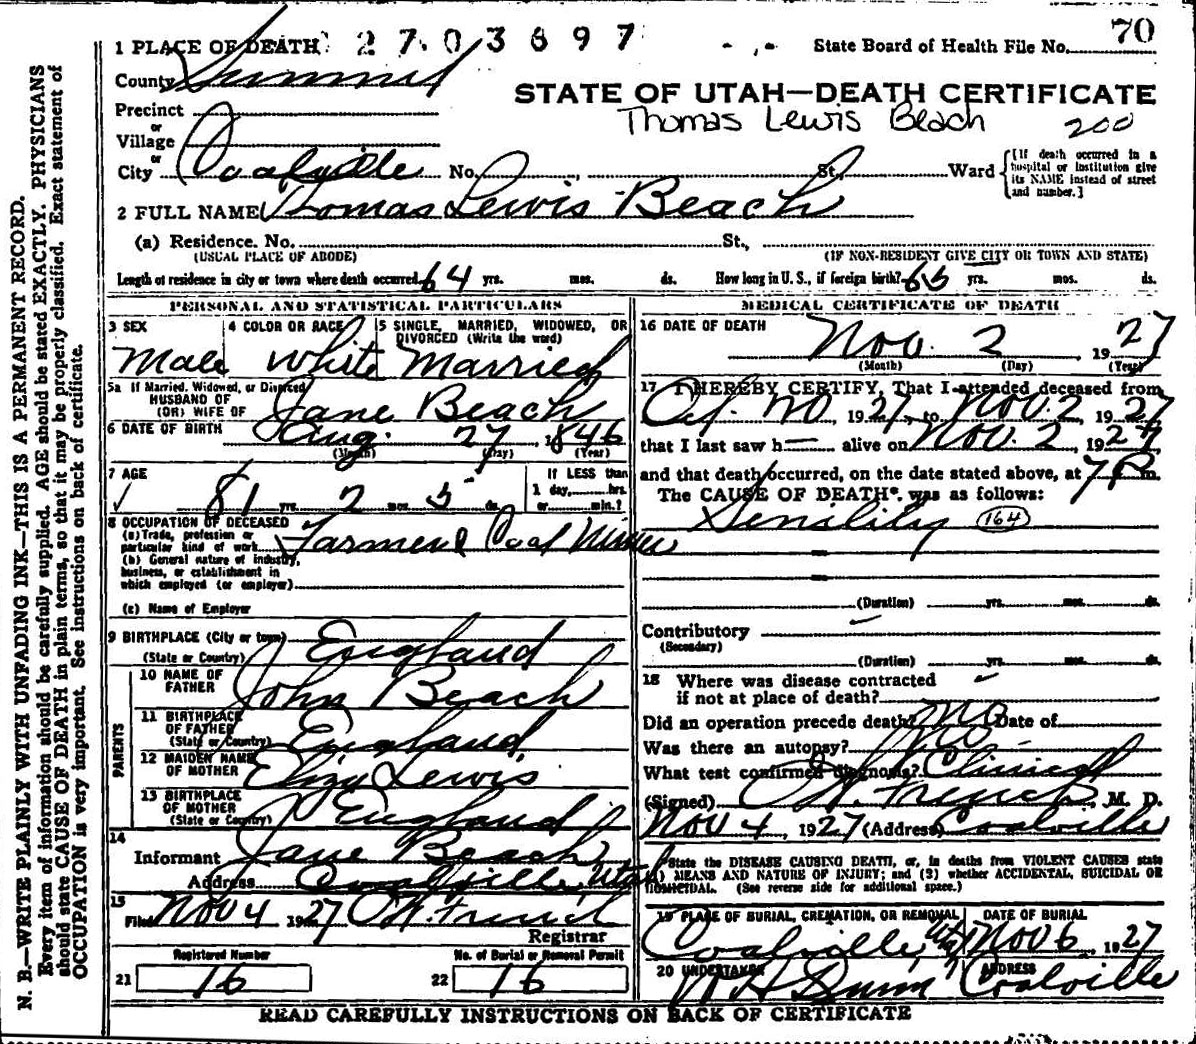 N. B.—WRITE PLAINLY WITH UNFADING INK—THIS IS A PERMANENT RECORD.
Every item of information should be carefully supplied. AGE should be stated EXACTLY. PHYSICIANS
should state CAUSE OF DEATH in plain terms, so that it may be properly classified. Exact statement of
OCCUPATION is very important. See instructions on back of certificate.
1 PLACE OF DEATH 2703697
State Board of Health File No. 70
County Summit
STATE OF UTAH—DEATH CERTIFICATE
Precinct
Thomas Lewis Beach 200
or
Village
or
City Coalville No. , St. Ward {[If death occurred in a hospital or institution give its NAME instead of street and number.]
2 FULL NAME Thomas Lewis Beach
(a) Residence. No. St.,
(USUAL PLACE OF ABODE) (IF NON-RESIDENT GIVE CITY OR TOWN AND STATE)
Length of residence in city or town where death occurred 64 yrs. mos. ds. How long in U. S., if foreign birth? 65 yrs. mos. ds.
PERSONAL AND STATISTICAL PARTICULARS
3 SEX 4 COLOR OR RACE 5 SINGLE, MARRIED, WIDOWED, OR
DIVORCED (Write the word)
Male White Married
5a If Married, Widowed, or Divorced
HUSBAND OF
(OR) WIFE OF Jane Beach
6 DATE OF BIRTH Aug. 27 1846
(Month) (Day) (Year)
7 AGE If LESS than
81 yrs. 2 mos. 5 ds. 1 day, hrs.
or min.?
8 OCCUPATION OF DECEASED
(a) Trade, profession or
particular kind of work Farmer & Coal Miner
(b) General nature of industry,
business, or establishment in
which employed (or employer)
(c) Name of Employer
9 BIRTHPLACE (City or town)
(State or Country) England
PARENTS
10 NAME OF
FATHER John Beach
11 BIRTHPLACE
OF FATHER
(State or Country) England
12 MAIDEN NAME
OF MOTHER Eliza Lewis
13 BIRTHPLACE
OF MOTHER
(State or Country) England
14
Informant Jane Beach
Address Coalville, Utah
15
Filed Nov 4 1927 O.W. French
Registrar
Registered Number No. of Burial or Removal Permit
21 16 22 16
MEDICAL CERTIFICATE OF DEATH
16 DATE OF DEATH
Nov. 2, 1927
(Month) (Day) (Year)
17 I HEREBY CERTIFY, That I attended deceased from
Oct. 20, 1927, to Nov. 2, 1927
that I last saw h— alive on Nov. 2, 1927
and that death occurred, on the date stated above, at 7 P m.
The CAUSE OF DEATH*, was as follows:
Senility 164
(Duration) yrs. mos. ds.
Contributory
(Secondary)
(Duration) yrs. mos. ds.
18 Where was disease contracted
if not at place of death?
Did an operation precede death? No Date of
Was there an autopsy? No
What test confirmed diagnosis? Clinical
(Signed) O.W. French, M. D.
Nov 4, 1927 (Address) Coalville
State the DISEASE CAUSING DEATH, or, in deaths from VIOLENT CAUSES state
(1) MEANS AND NATURE OF INJURY; and (2) whether ACCIDENTAL, SUICIDAL OR
HOMICIDAL. (See reverse side for additional space.)
19 PLACE OF BURIAL, CREMATION, OR REMOVAL DATE OF BURIAL
Coalville, Utah Nov 6, 1927
20 UNDERTAKER ADDRESS
Coalville
READ CAREFULLY INSTRUCTIONS ON BACK OF CERTIFICATE